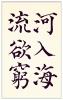 河入海
流欲窮